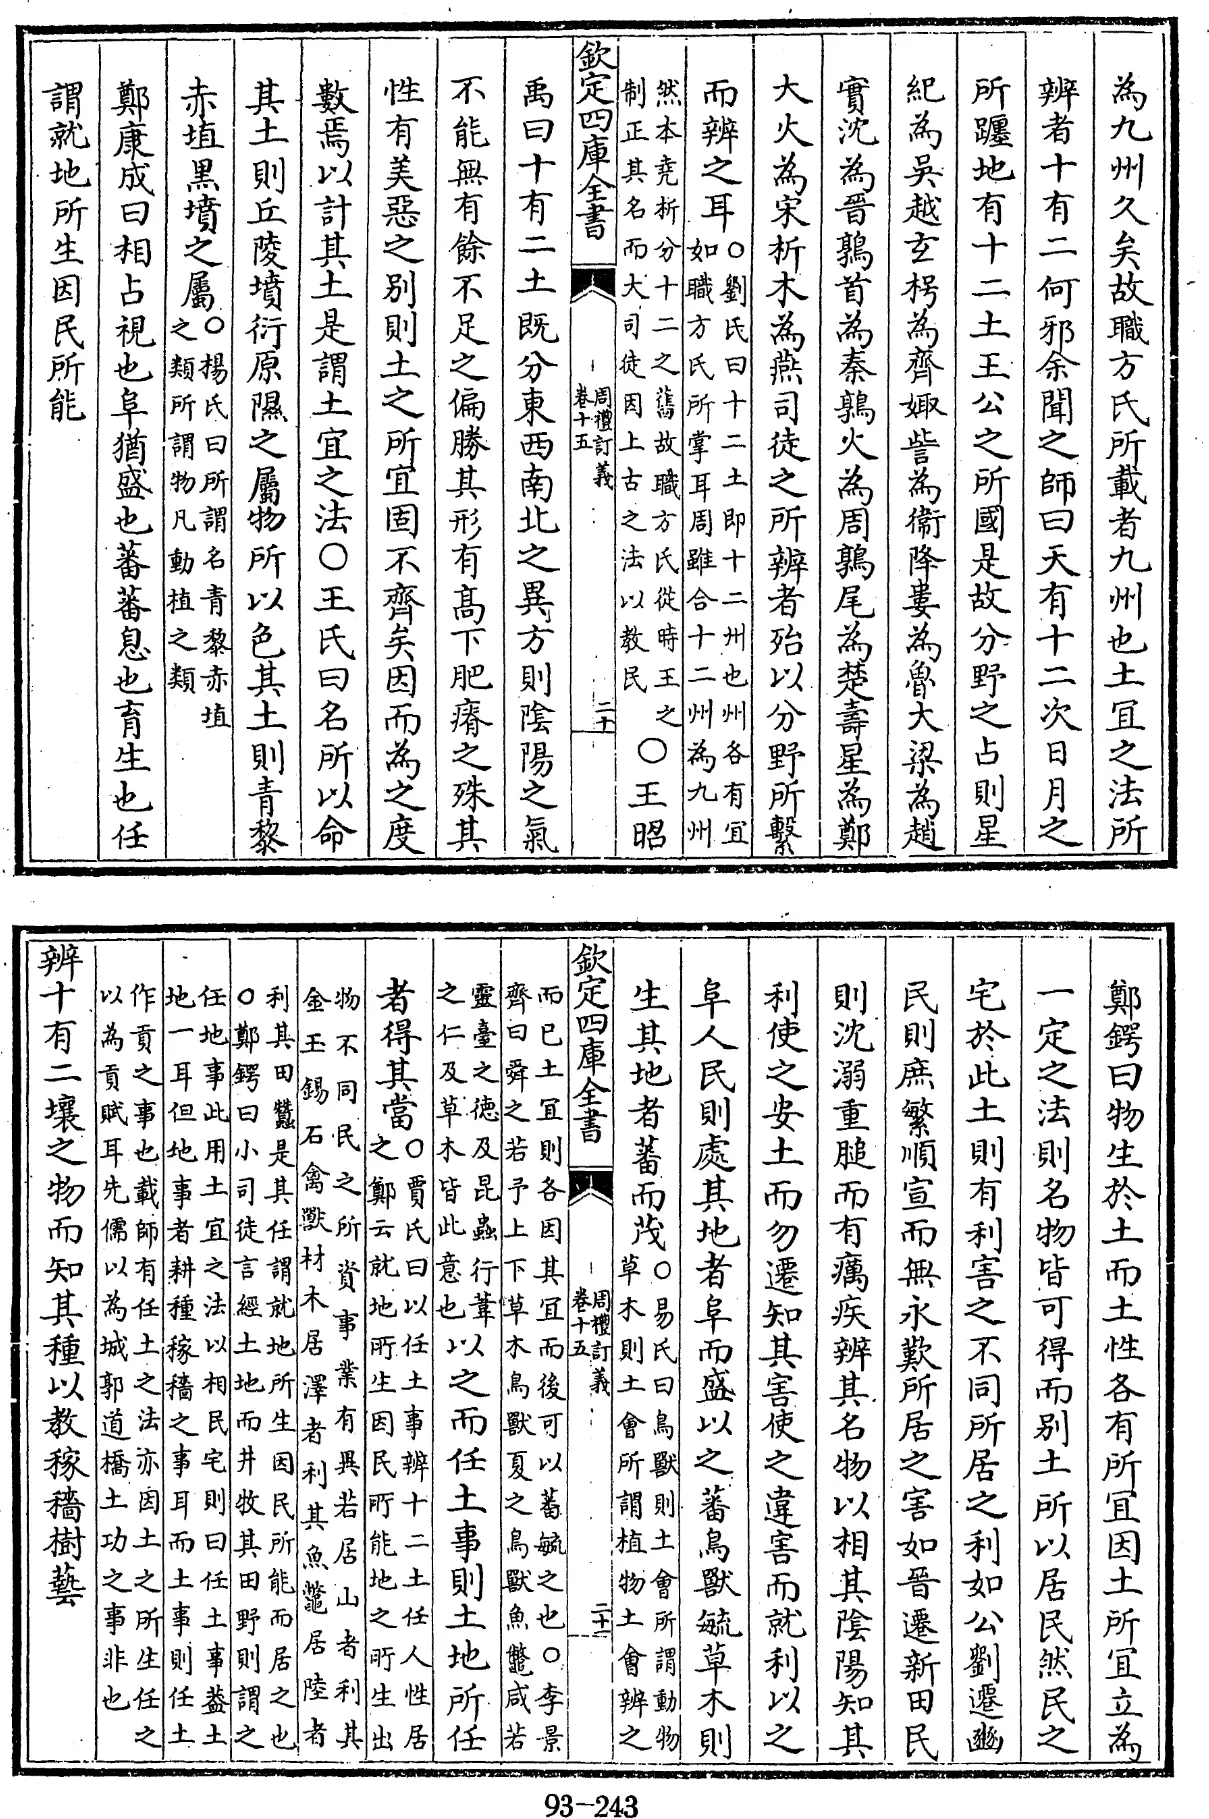 為九州久矣故職方氏所載者九州也土宜之法所
辨者十有二何邪余聞之師曰天有十二次日月之
所躔地有十二土王公之所國是故分野之占則星
紀為吳越玄枵為齊娵訾為衞降婁為魯大梁為趙
實沈為晉鶉首為秦鶉火為周鶉尾為楚壽星為鄭
大火為宋析木為燕司徒之所辨者殆以分野所繫
而辨之耳○劉氏曰十二土即十二州也州各有宜
如職方氏所掌耳周雖合十二州為九州
然本堯析分十二之舊故職方氏從時王之
制正其名而大司徒因上古之法以教民○王昭
欽定四庫全書
周禮訂義
卷十五
二十
禹曰十有二土既分東西南北之異方則陰陽之氣
不能無有餘不足之偏勝其形有高下肥瘠之殊其
性有美惡之别則土之所宜固不齊矣因而為之度
數焉以計其土是謂土宜之法○王氏曰名所以命
其土則丘陵墳衍原隰之屬物所以色其土則青黎
赤埴黑墳之屬○楊氏曰所謂名青黎赤埴
之類所謂物凡動植之類
鄭康成曰相占視也阜猶盛也蕃蕃息也育生也任
謂就地所生因民所能
鄭鍔曰物生於土而土性各有所宜因土所宜立為
一定之法則名物皆可得而别土所以居民然民之
宅於此土則有利害之不同所居之利如公劉遷豳
民則庶繁順宣而無永歎所居之害如晉遷新田民
則沈溺重膇而有癘疾辨其名物以相其陰陽知其
利使之安土而勿遷知其害使之違害而就利以之
阜人民則處其地者阜而盛以之蕃鳥獸毓草木則
生其地者蕃而茂○易氏曰鳥獸則土會所謂動物
草木則土會所謂植物土會辨之
欽定四庫全書
周禮訂義
卷十五
二十一
而已土宜則各因其宜而後可以蕃毓之也○李景
齊曰舜之若予上下草木鳥獸夏之鳥獸魚鼈咸若
靈臺之德及昆蟲行葦
之仁及草木皆此意也以之而任土事則土地所任
者得其當○賈氏曰以任土事辨十二土任人性居
之鄭云就地所生因民所能地之所生出
物不同民之所資事業有異若居山者利其
金玉錫石禽獸材木居澤者利其魚鼈居陸者
利其田蠶是其任謂就地所生因民所能而居之也
○鄭鍔曰小司徒言經土地而井牧其田野則謂之
任地事此用土宜之法以相民宅則曰任土事蓋土
地一耳但地事者耕種稼穡之事耳而土事則任土
作貢之事也載師有任土之法亦因土之所生任之
以為貢賦耳先儒以為城郭道橋土功之事非也
辨十有二壤之物而知其種以教稼穡樹藝
93-243